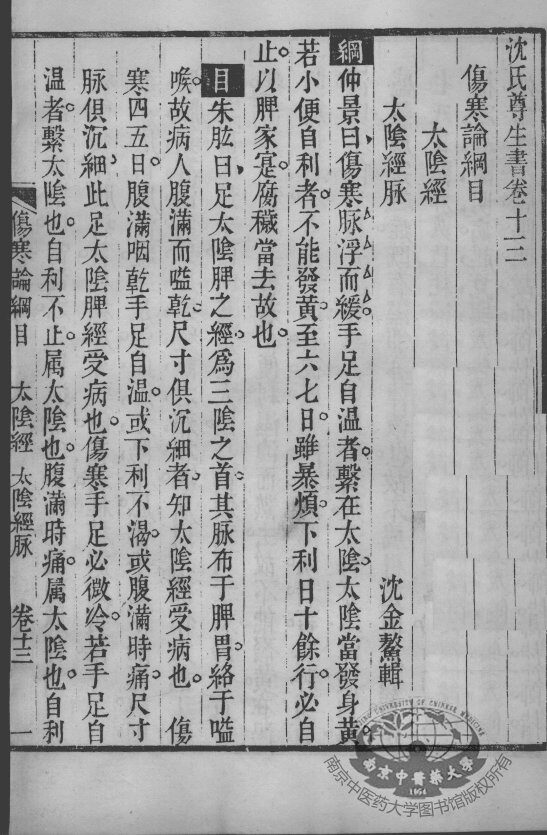 沈氏尊生書卷十三
傷寒論綱目
太陰經
太陰經脉
沈金鰲輯
綱仲景曰傷寒脉浮而緩手足自温者繫在太陰太陰當發身黃
若小便自利者不能發黃至六七日雖暴煩下利日十餘行必自
止以脾家寔腐穢當去故也
目朱肱曰足太陰脾之經爲三陰之首其脉布于脾胃絡于嗌
喉故病人腹滿而嗌乾尺寸俱沉細者知太陰經受病也 傷
寒四五日腹滿咽乾手足自温或下利不渴或腹滿時痛尺寸
脉俱沉細此足太陰脾經受病也傷寒手足必微冷若手足自
温者繫太陰也自利不止属太陰也腹滿時痛属太陰也自利
傷寒論綱目 太陰經 太陰經脉 卷十三 一
UNIVERSITY OF CHINESE MEDICINE
南京中醫藥大學
1954
南京中医药大学图书馆版权所有